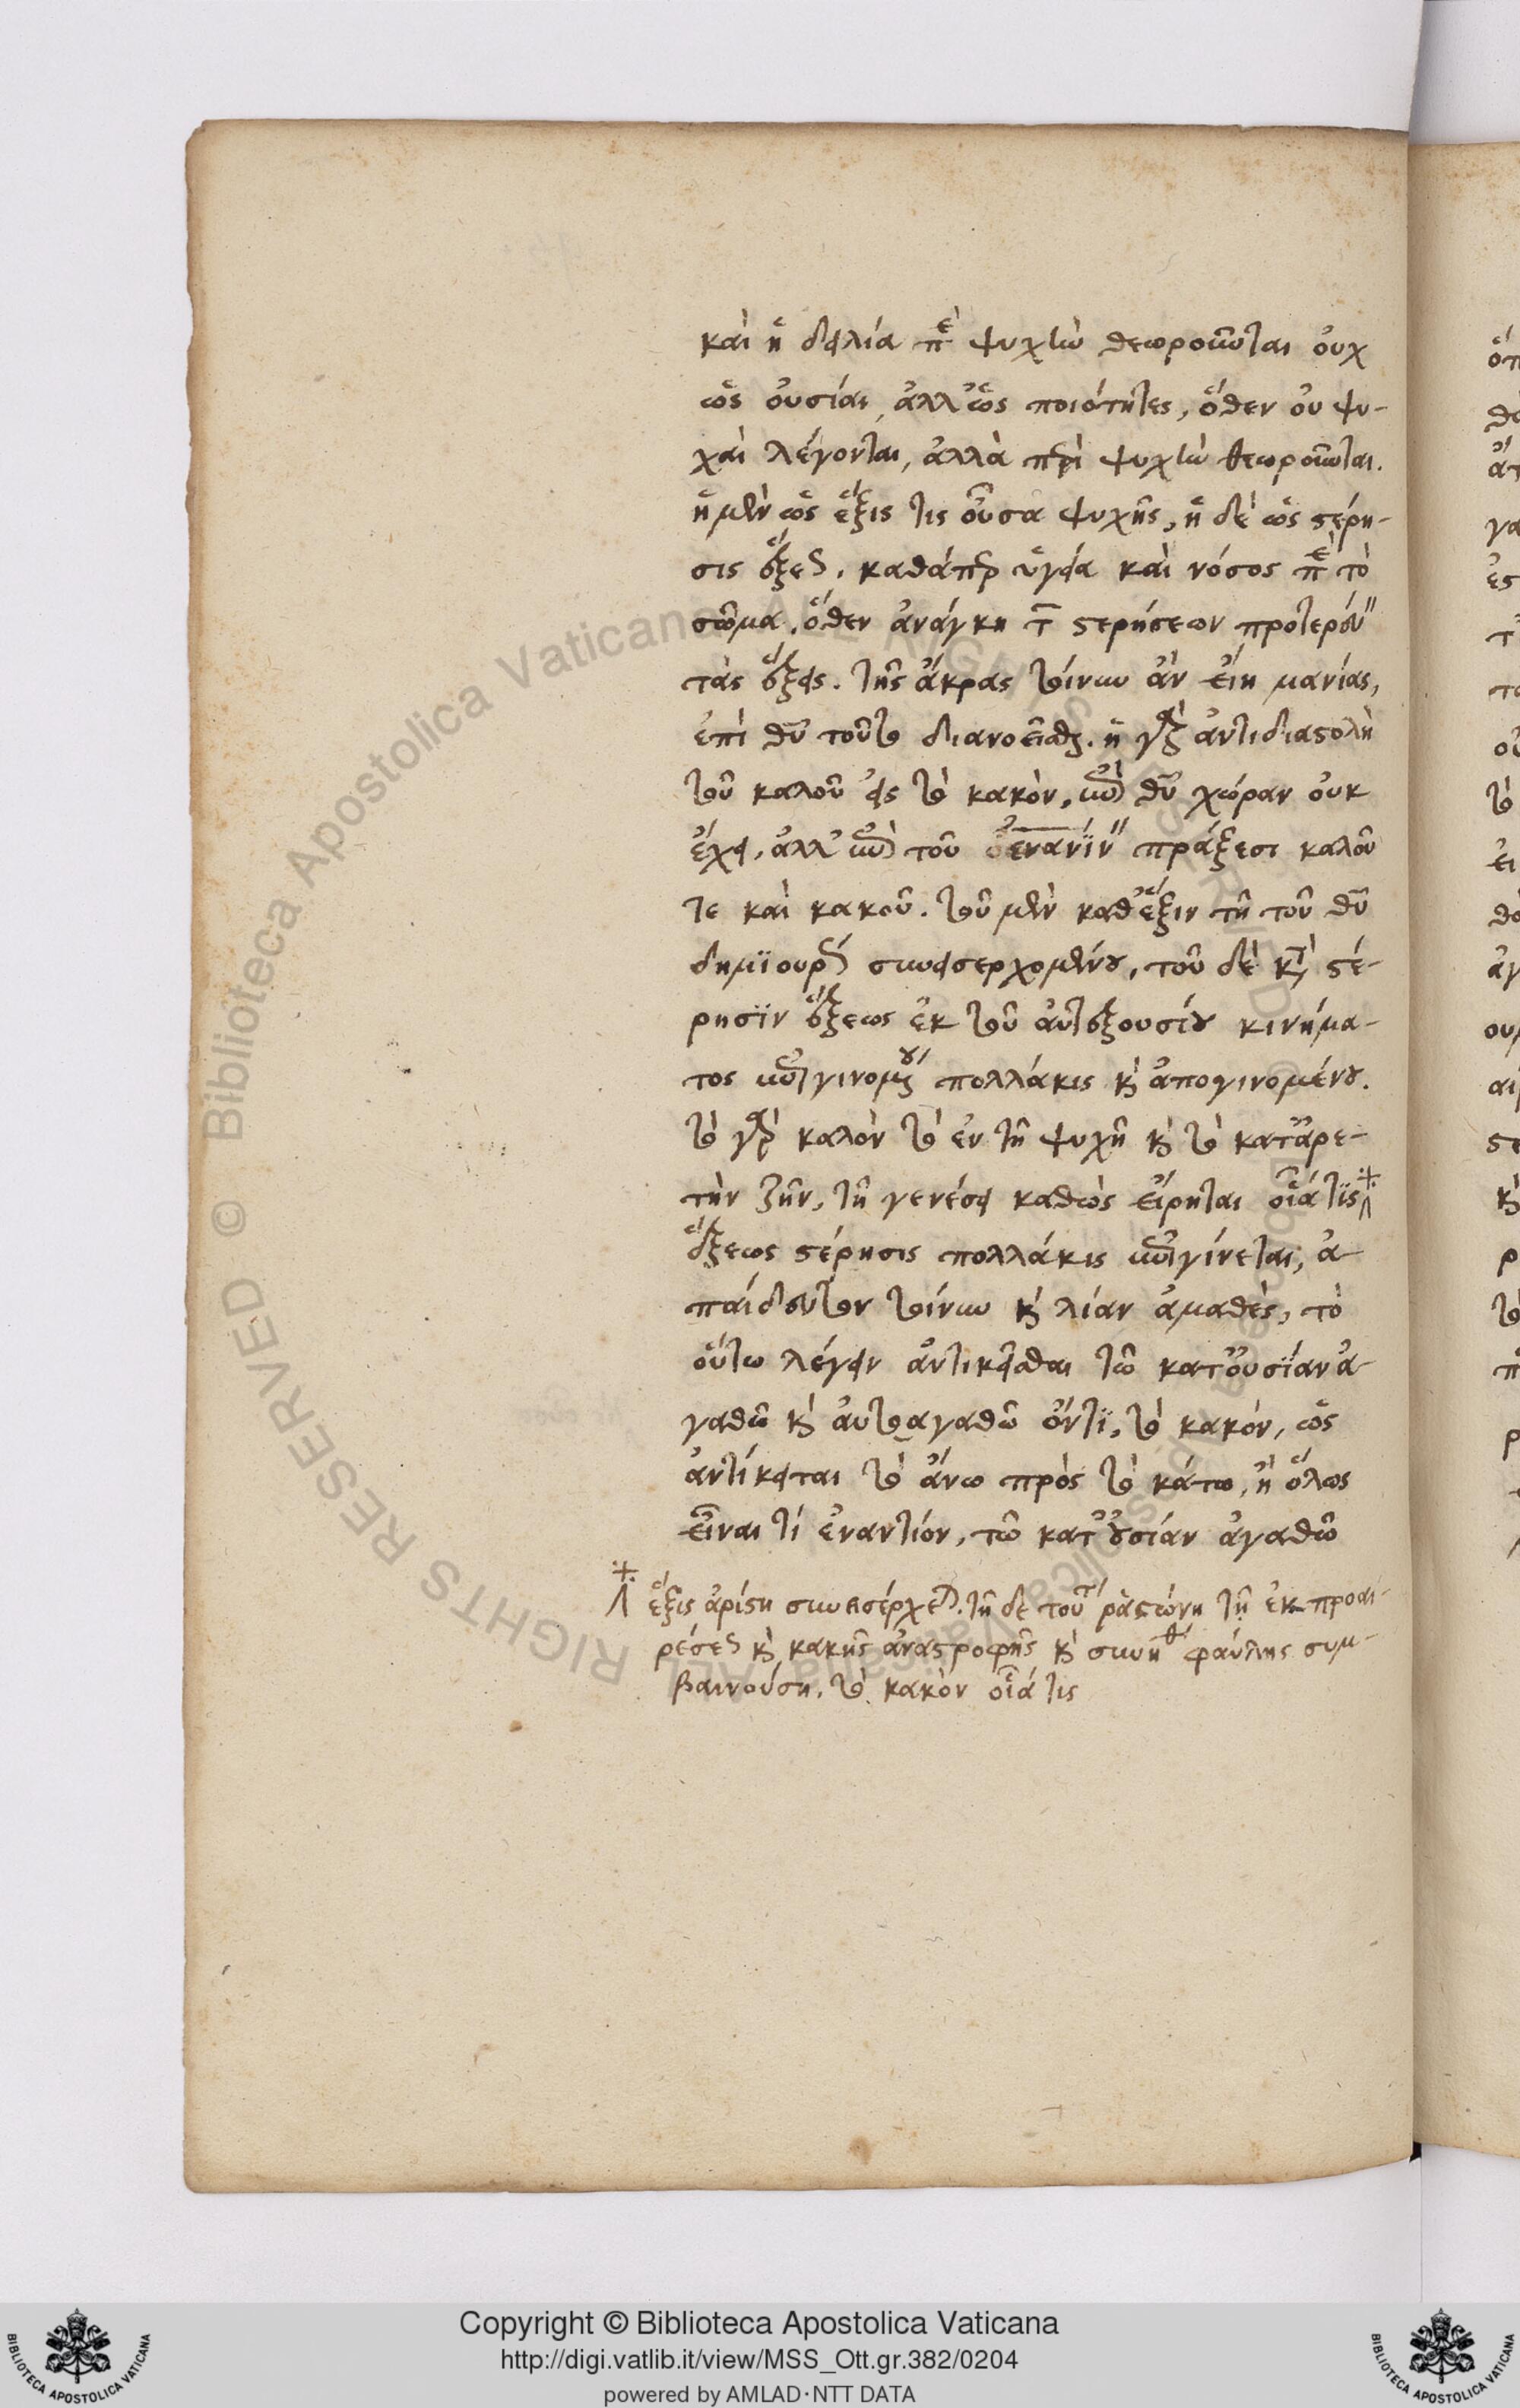 καὶ ἡ δειλία περὶ ψυχὴν θεωροῦνται οὐχ
ὡς οὐσίαι, ἀλλ' ὡς ποιότητες, ὅθεν οὐ ψυ-
χαὶ λέγονται, ἀλλὰ περὶ ψυχὴν θεωροῦνται.
ἡ μὲν ὡς ἕξις τις οὖσα ψυχῆς, ἡ δὲ ὡς στέρη-
σις ἕξεως. καθάπερ ὑγεία καὶ νόσος περὶ τὸ
σῶμα. ὅθεν ἀνάγκη τῶν στερήσεων προτερεύειν
τὰς ἕξεις. τῆς ἄκρας τοίνυν ἂν εἴη μανίας,
ἐπὶ θεοῦ τοῦτο διανοεῖσθαι. ἡ γὰρ ἀντιδιαστολὴ
τοῦ καλοῦ εἰς τὸ κακὸν, θεοῦ χώραν οὐκ
ἔχει, ἀλλ' τοῦ πράξεσι καλοῦ
τε καὶ κακοῦ. τοῦ μὲν καθ' ἕξιν τῇ τοῦ θεοῦ
δημϊουργίᾳ συνεισερχομένου, τοῦ δὲ κατὰ στέ-
ρησϊν ἕξεως ἐκ τοῦ αὐτεξουσίου κινήμα-
τος ἐπιγινομένου πολλάκις καὶ ἀπογινομένου.
τὸ γὰρ καλὸν τὸ ἐν τῇ ψυχῇ καὶ τὸ κατ' ἀρε-
τὴν ζῆν, τῇ γενέσει καθὼς εἴρηται οἷά τϊς
ἕξεως στέρησις πολλάκις ἐπιγίνεται, ἀ-
παίδευτον τοίνυν καὶ λίαν ἀμαθὲς, τὸ
οὕτω λέγειν ἀντικεῖσθαι τῷ κατ' οὐσϊαν ἀ-
γαθῷ καὶ αὐτοαγαθῷ ὄντϊ, τὸ κακόν, ὡς
ἀντίκειται τὸ ἄνω πρὸς τὸ κάτω, ἢ ὅλως
εἶναι τί ἐναντίον, τῷ κατ' οὐσίαν ἀγαθῷ
ἕξις ἀρίστη συνεισέρχεται. τῇ δὲ τούτων ῥαστώνῃ τῇ ἐκ προαι-
ρέσεως καὶ κακῆς ἀναστροφῆς καὶ συνηθείας φαύλης συμ-
βαινούσῃ. τὸ κακὸν οἷά τις
Copyright © Biblioteca Apostolica Vaticana
http://digi.vatlib.it/view/MSS_Ott.gr.382/0204
powered by AMLAD·NTT DATA